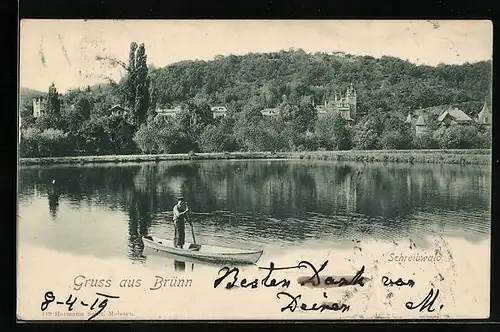 Schreibwald
Gruss aus Brünn
Besten Dank von
Deinen M.
8-4-15
119 Hermann Seibt, Meissen.